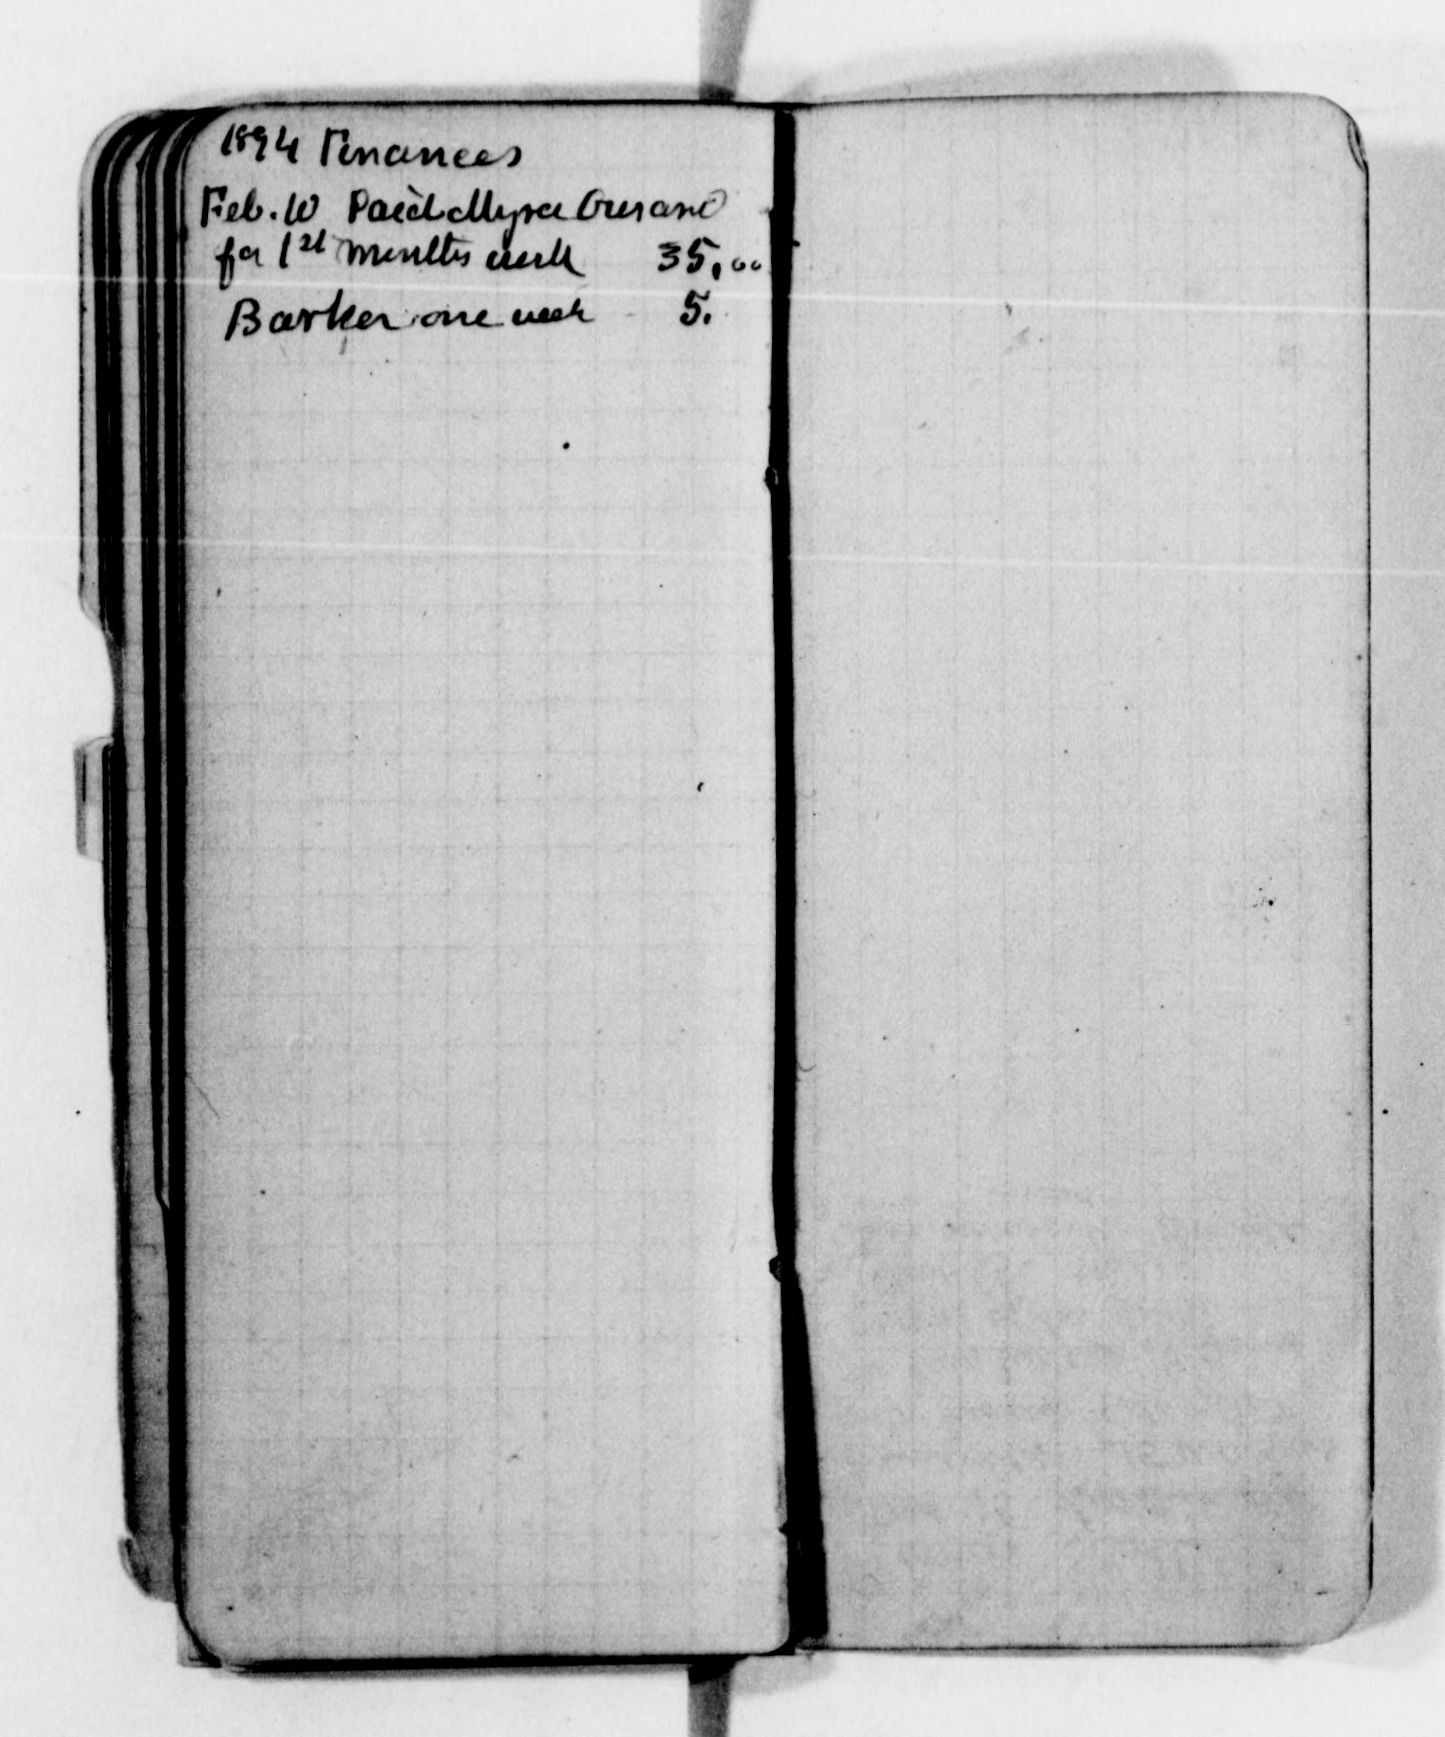 1894 Finances
Feb. 10 Paid Myra
for 1st months work 35.00
Barker one week 5.